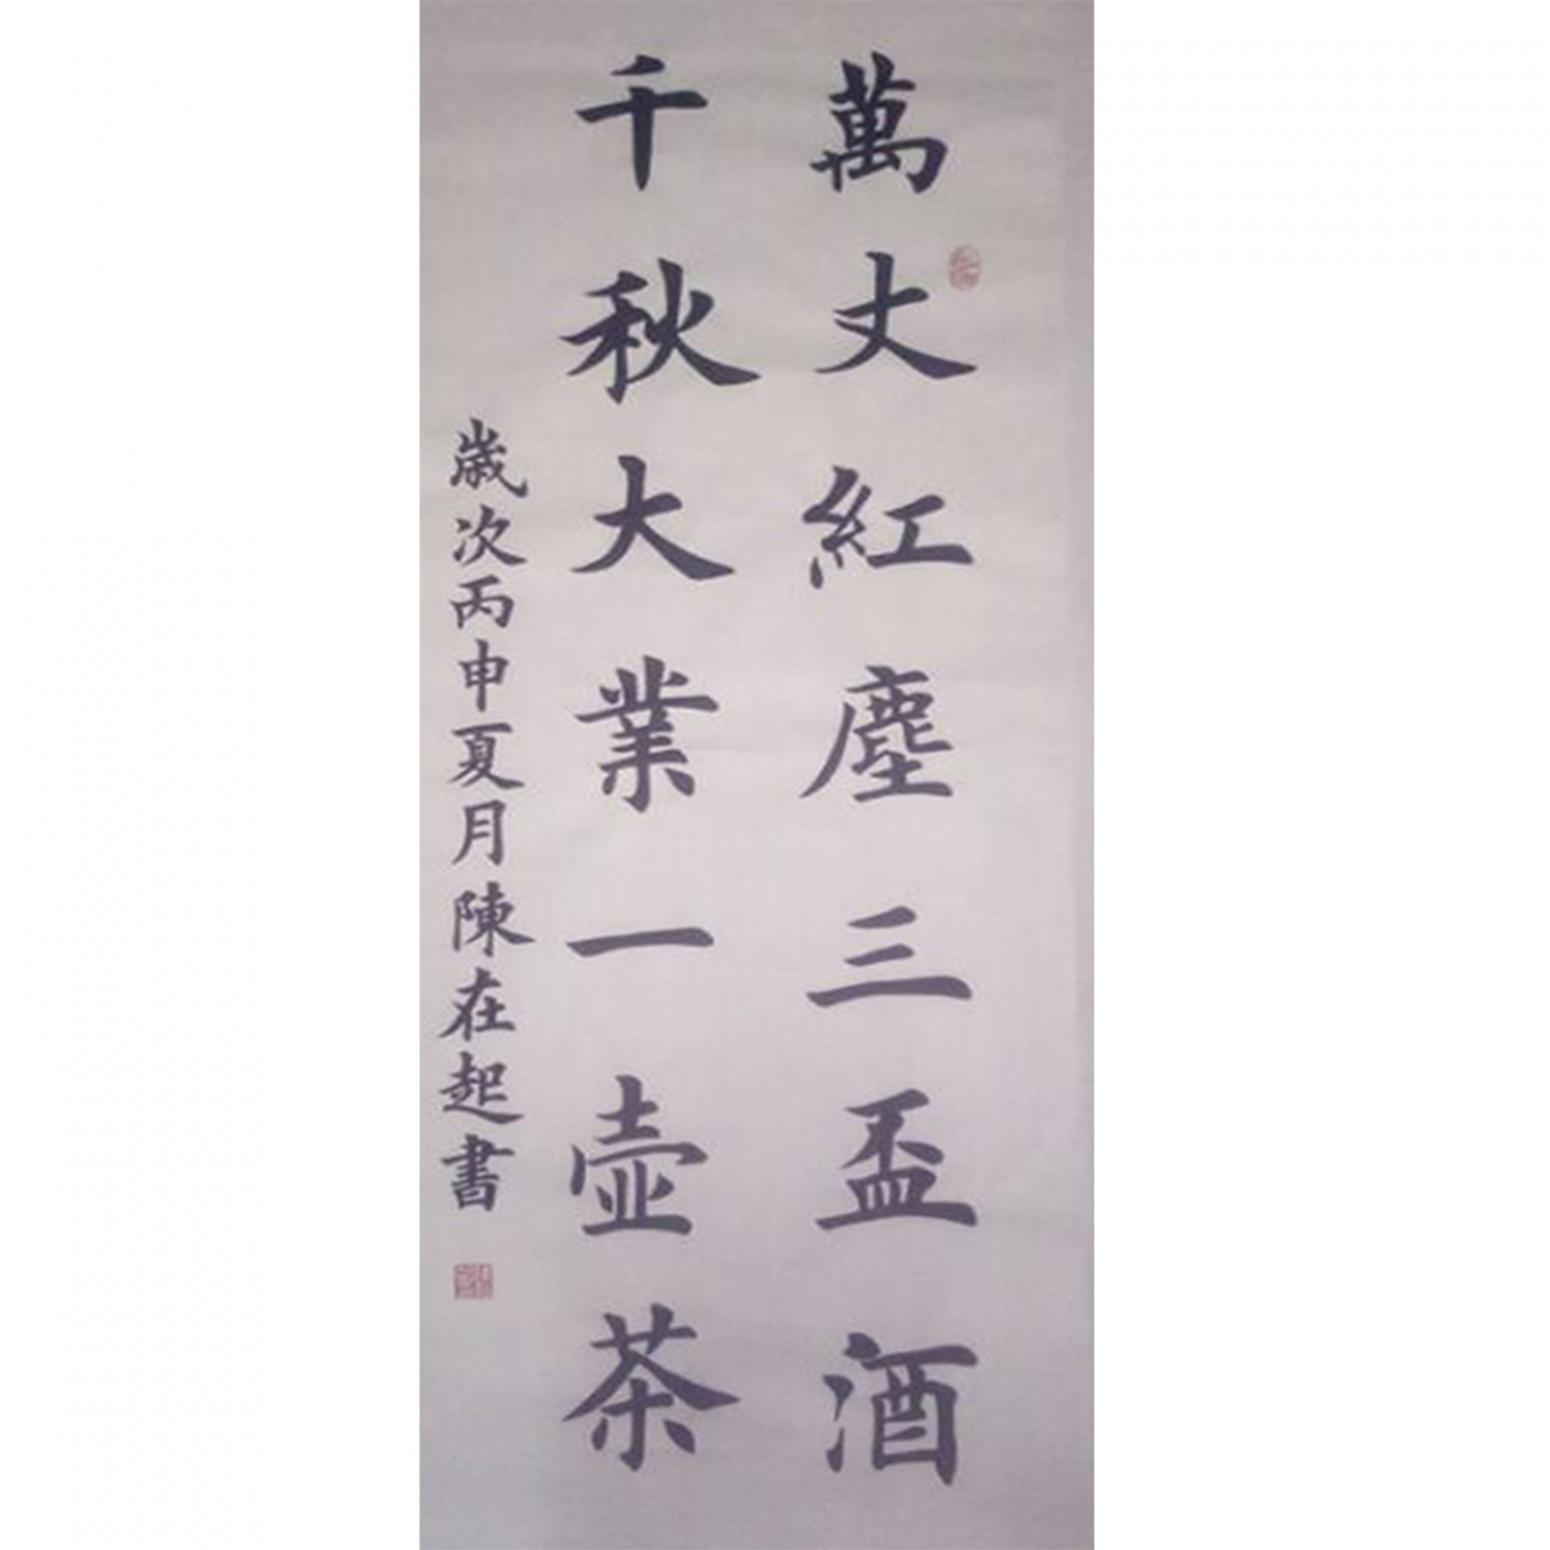 萬丈紅塵三盃酒
千秋大業一壺茶
歲次丙申夏月陳在起書